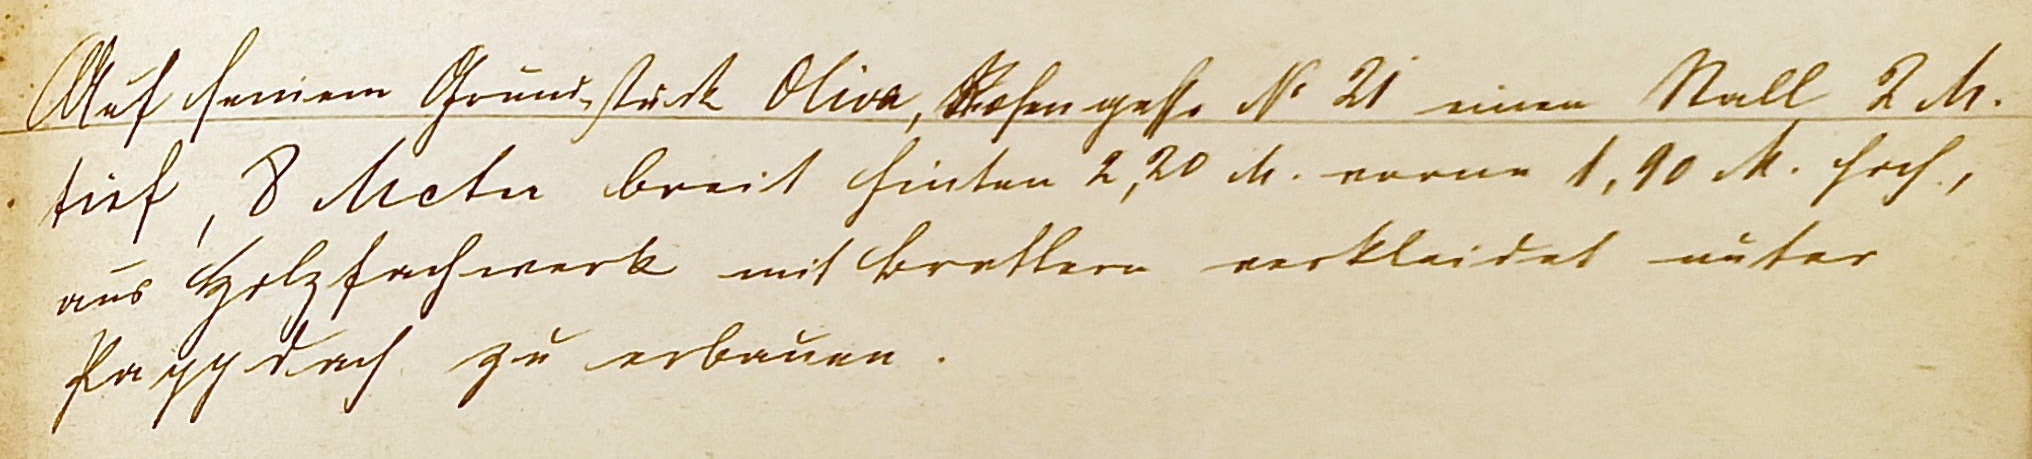 Auf seinem Grundstück Oliva, Rosengasse No 21 einen Stall 2 M.
tief, 8 Meter breit hinten 2,20 M. vorne 1,90 M. hoch,
aus Holzfachwerk mit Brettern verkleidet unter
Pappdach zu erbauen.